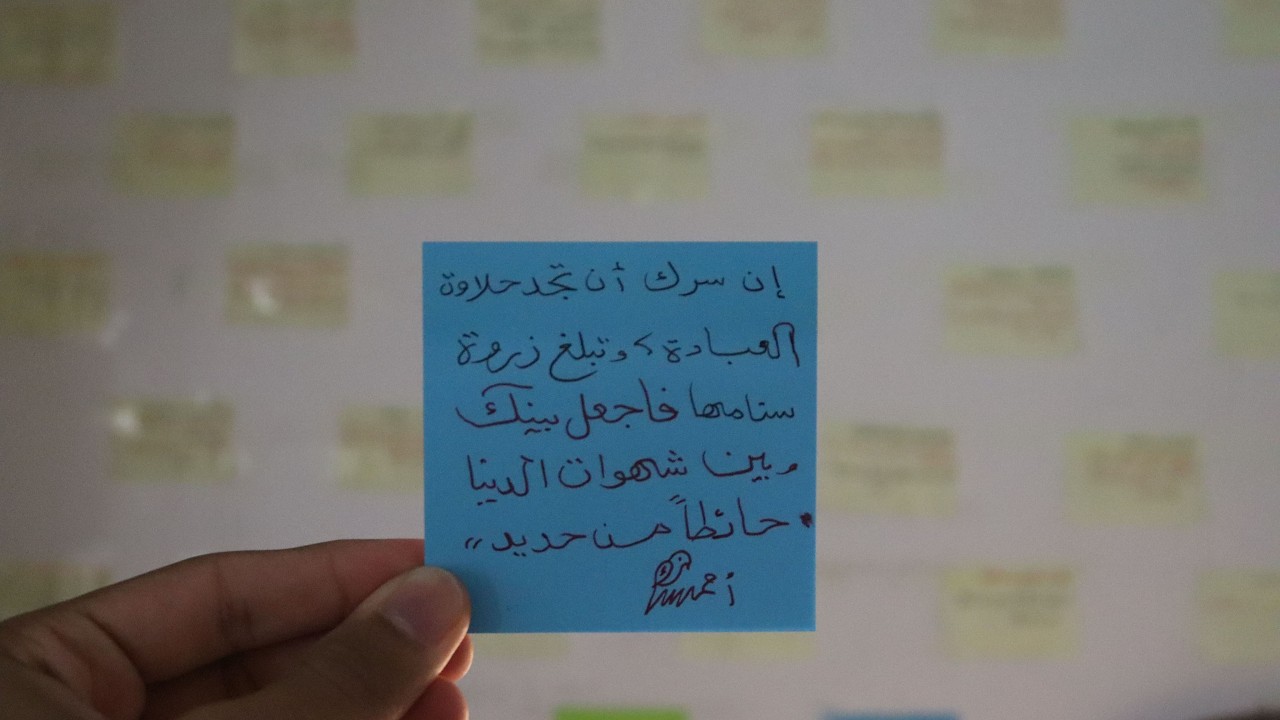 إن سرك أن تجد حلاوة
العبادة، وتبلغ زروة
سنامها فاجعل بينك
وبين شهوات الدنيا
حائطاً من حديد"